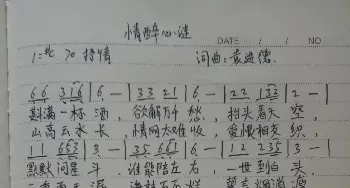 情醉心谜
DATE / / NO
1=♭E 70 抒情 词曲:袁进德
6 6 3 1 6 | 6 — | 3 3 2 1 | 6 — | 2 2 1 3 2 | 2 — |
斟满一杯酒,欲解万千愁,抬头看天空,
山高云水长,情网太难收,爱恨相交织,
1 1 6 5 3 | 3 — | 3 5 6 6 1 | 6 — | 1 2 2 3 5 | 3 — |
默默问星斗.谁能陪左右,一世到白头,